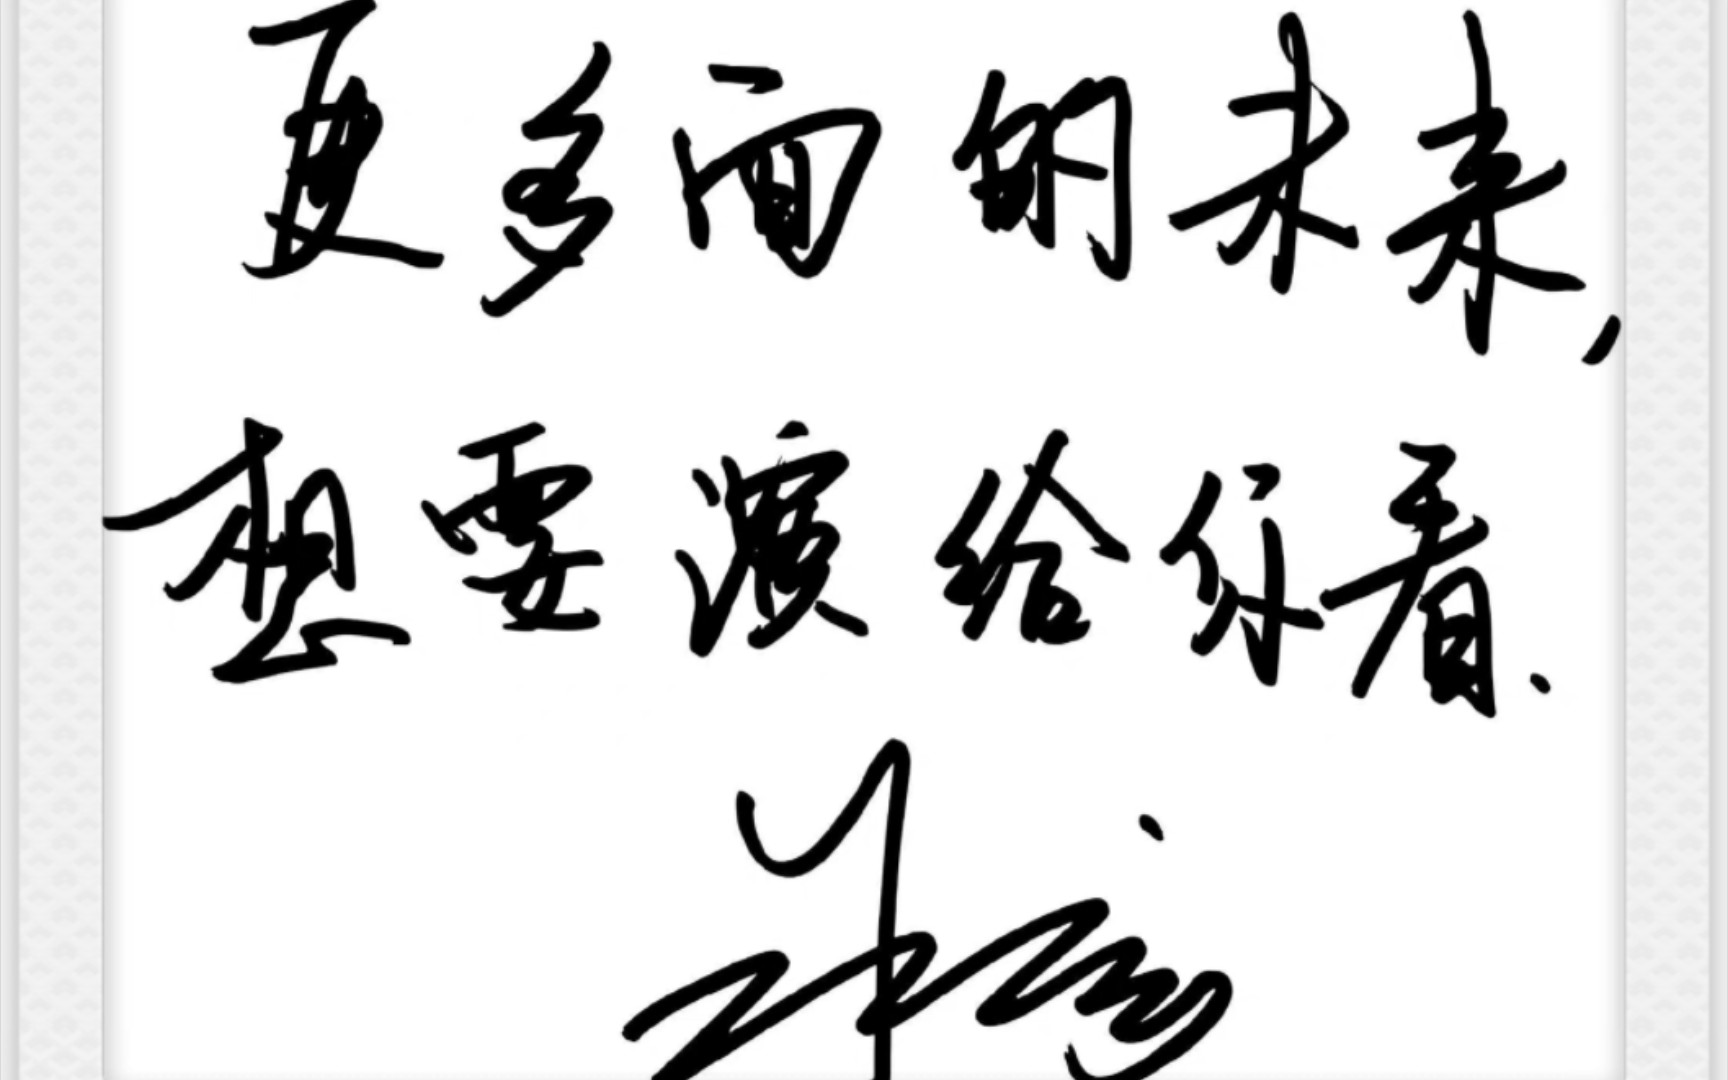 更多面的未来,
想要演给你看.